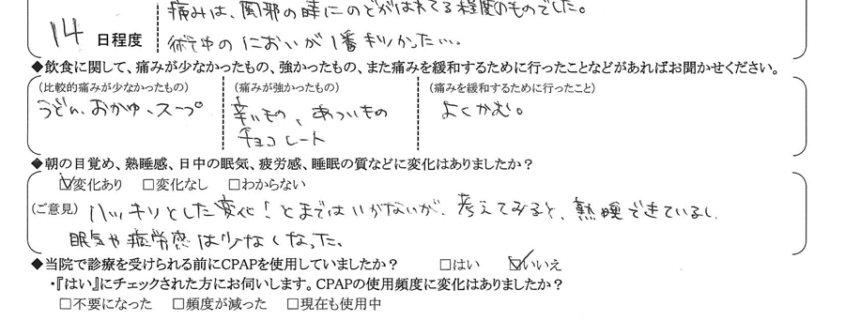 痛みは、風邪の時にのどがはれてる程度のものでした。
14 日程度
術中のにおいが1番キツかった…
◆飲食に関して、痛みが少なかったもの、強かったもの、また痛みを緩和するために行ったことなどがあればお聞かせください。
(比較的痛みが少なかったもの) (痛みが強かったもの) (痛みを緩和するために行ったこと)
うどん、おかゆ、スープ 辛いもの、あついもの よくかむ。
チョコレート
◆朝の目覚め、熟睡感、日中の眠気、疲労感、睡眠の質などに変化はありましたか?
☑変化あり □変化なし □わからない
(ご意見) ハッキリとした変化!とまではいかないが、考えてみると、熟睡できているし
眠気や疲労感は少なくなった。
◆当院で診療を受けられる前にCPAPを使用していましたか? □はい ☑いいえ
・『はい』にチェックされた方にお伺いします。CPAPの使用頻度に変化はありましたか?
□不要になった □頻度が減った □現在も使用中